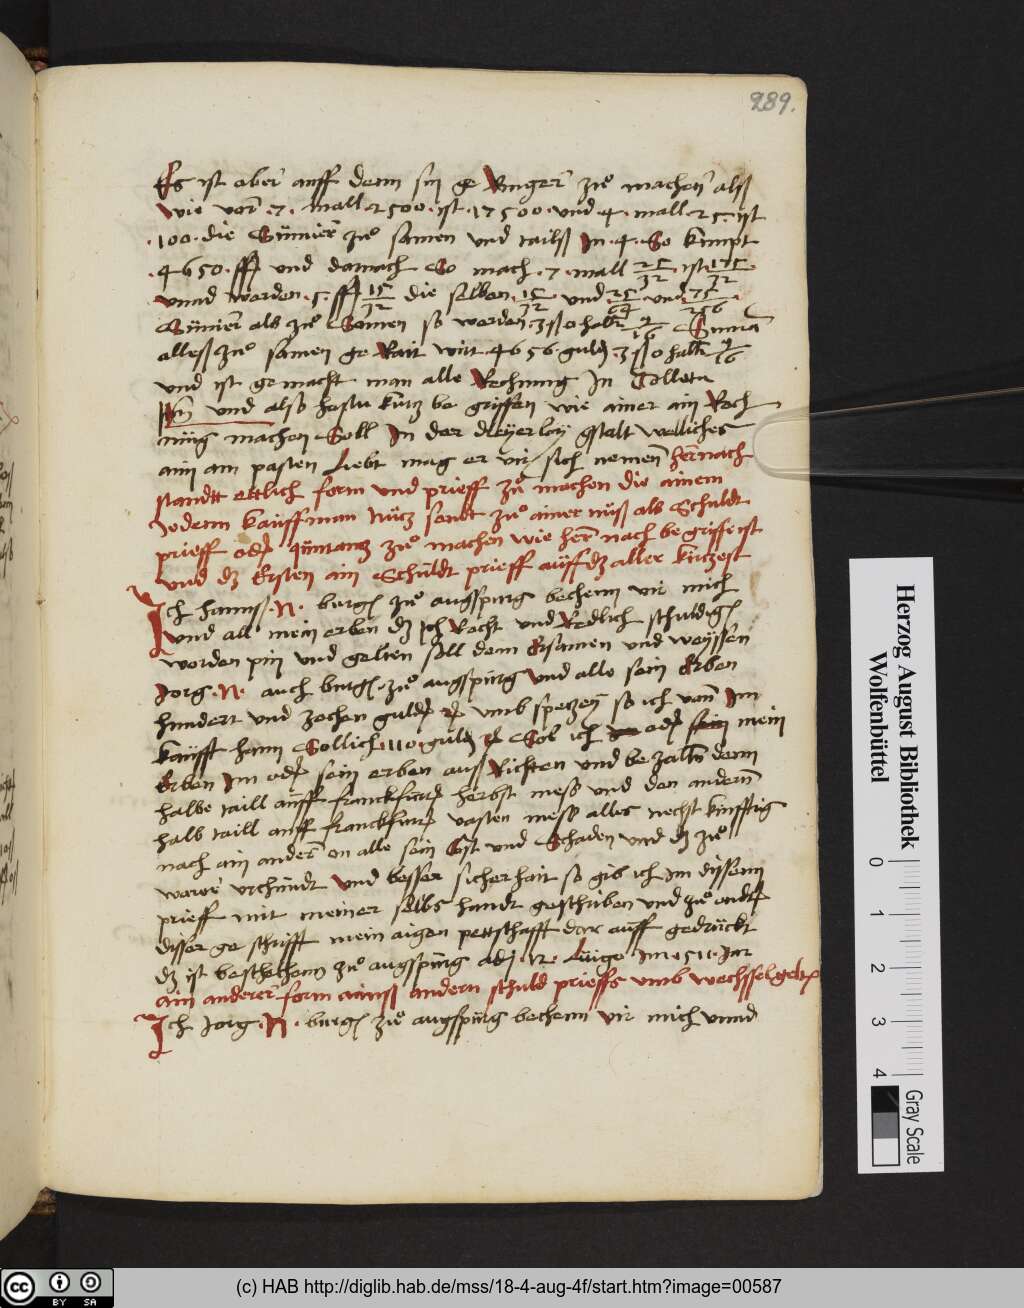 289.
Es ist aber auff denn sin ge Ringer zuo machen alß
wie vor 7 mall 2500 ist 17500 und 4 mall 25 ist
100 die Sumier zuo samen und tails In 4 So kumpt
4650 ff und darnach So mach 7 mall 25/32 ist 175/32
unnd werden 5 ff 15/32 die selben 15/32 und 25/64 und 75/256
Sumier als zuo Samen so werden 3 ß 0 halr 9/16 Suma
alleß zuo samen ge Rait wirt 4656 guld 3 ß 0 halr 9/16
und ist gemacht man alle Rechnung In Tolleta
und also hastu kurtz be griffen wie ainer ain Rech
nung machen Soll In der dreyerley gstalt welliches
aim am pasten Liebt mag er vir sich nemen hernach
standtt ettlich form und prieff zu machen die ainem
Jedenn kauffman Nutz sendt zuo ainer nuß als Schuldt
prieff oder quintantz zuo machen wie her nach begriffen ist
und dz Ersten ain Schuldt prieff auff dz aller kürczest
Ich hannß N burger zuo augspurg bechenn vir mich
und all mein erben dz Ich Recht und Redlich schuldig
worden pin und gelten soll dem Ersamen und weyssen
Jorg N auch burger zuo augspurg und alle sein Erben
hundert und zechen guldin umb spetzery so ich von Im
kaufft hann Sollich 110 guldin Sol ich oder sein mein
Erben Im oder sein erben auß Richten und bezaln denn
halbe taill auff franckfurt herbst mess und den andern
halb taill auff franckfurt vasten mess alles nechst kunfftig
nach ain ander on alle sein Cost und Schaden und dz zuo
warer urchundt und besser sicherhait so gib ich Im dissenn
prieff mit meiner selbs handt geschriben und zuo endt
disser ge schrifft mein aigen pettschafft dar auff gedruckt
dz ist beschehenn zuo augspurg adj 12 Luigo Im 1511 Jar
ain anderer form ainß andern schuld prieffs umb wechsselgelt
Ich Jorg N burger zuo augspurg bechenn vir mich unnd
Herzog August Bibliothek
Wolfenbüttel
0 1 2 3 4
Gray Scale
cc BY SA
(c) HAB http://diglib.hab.de/mss/18-4-aug-4f/start.htm?image=00587